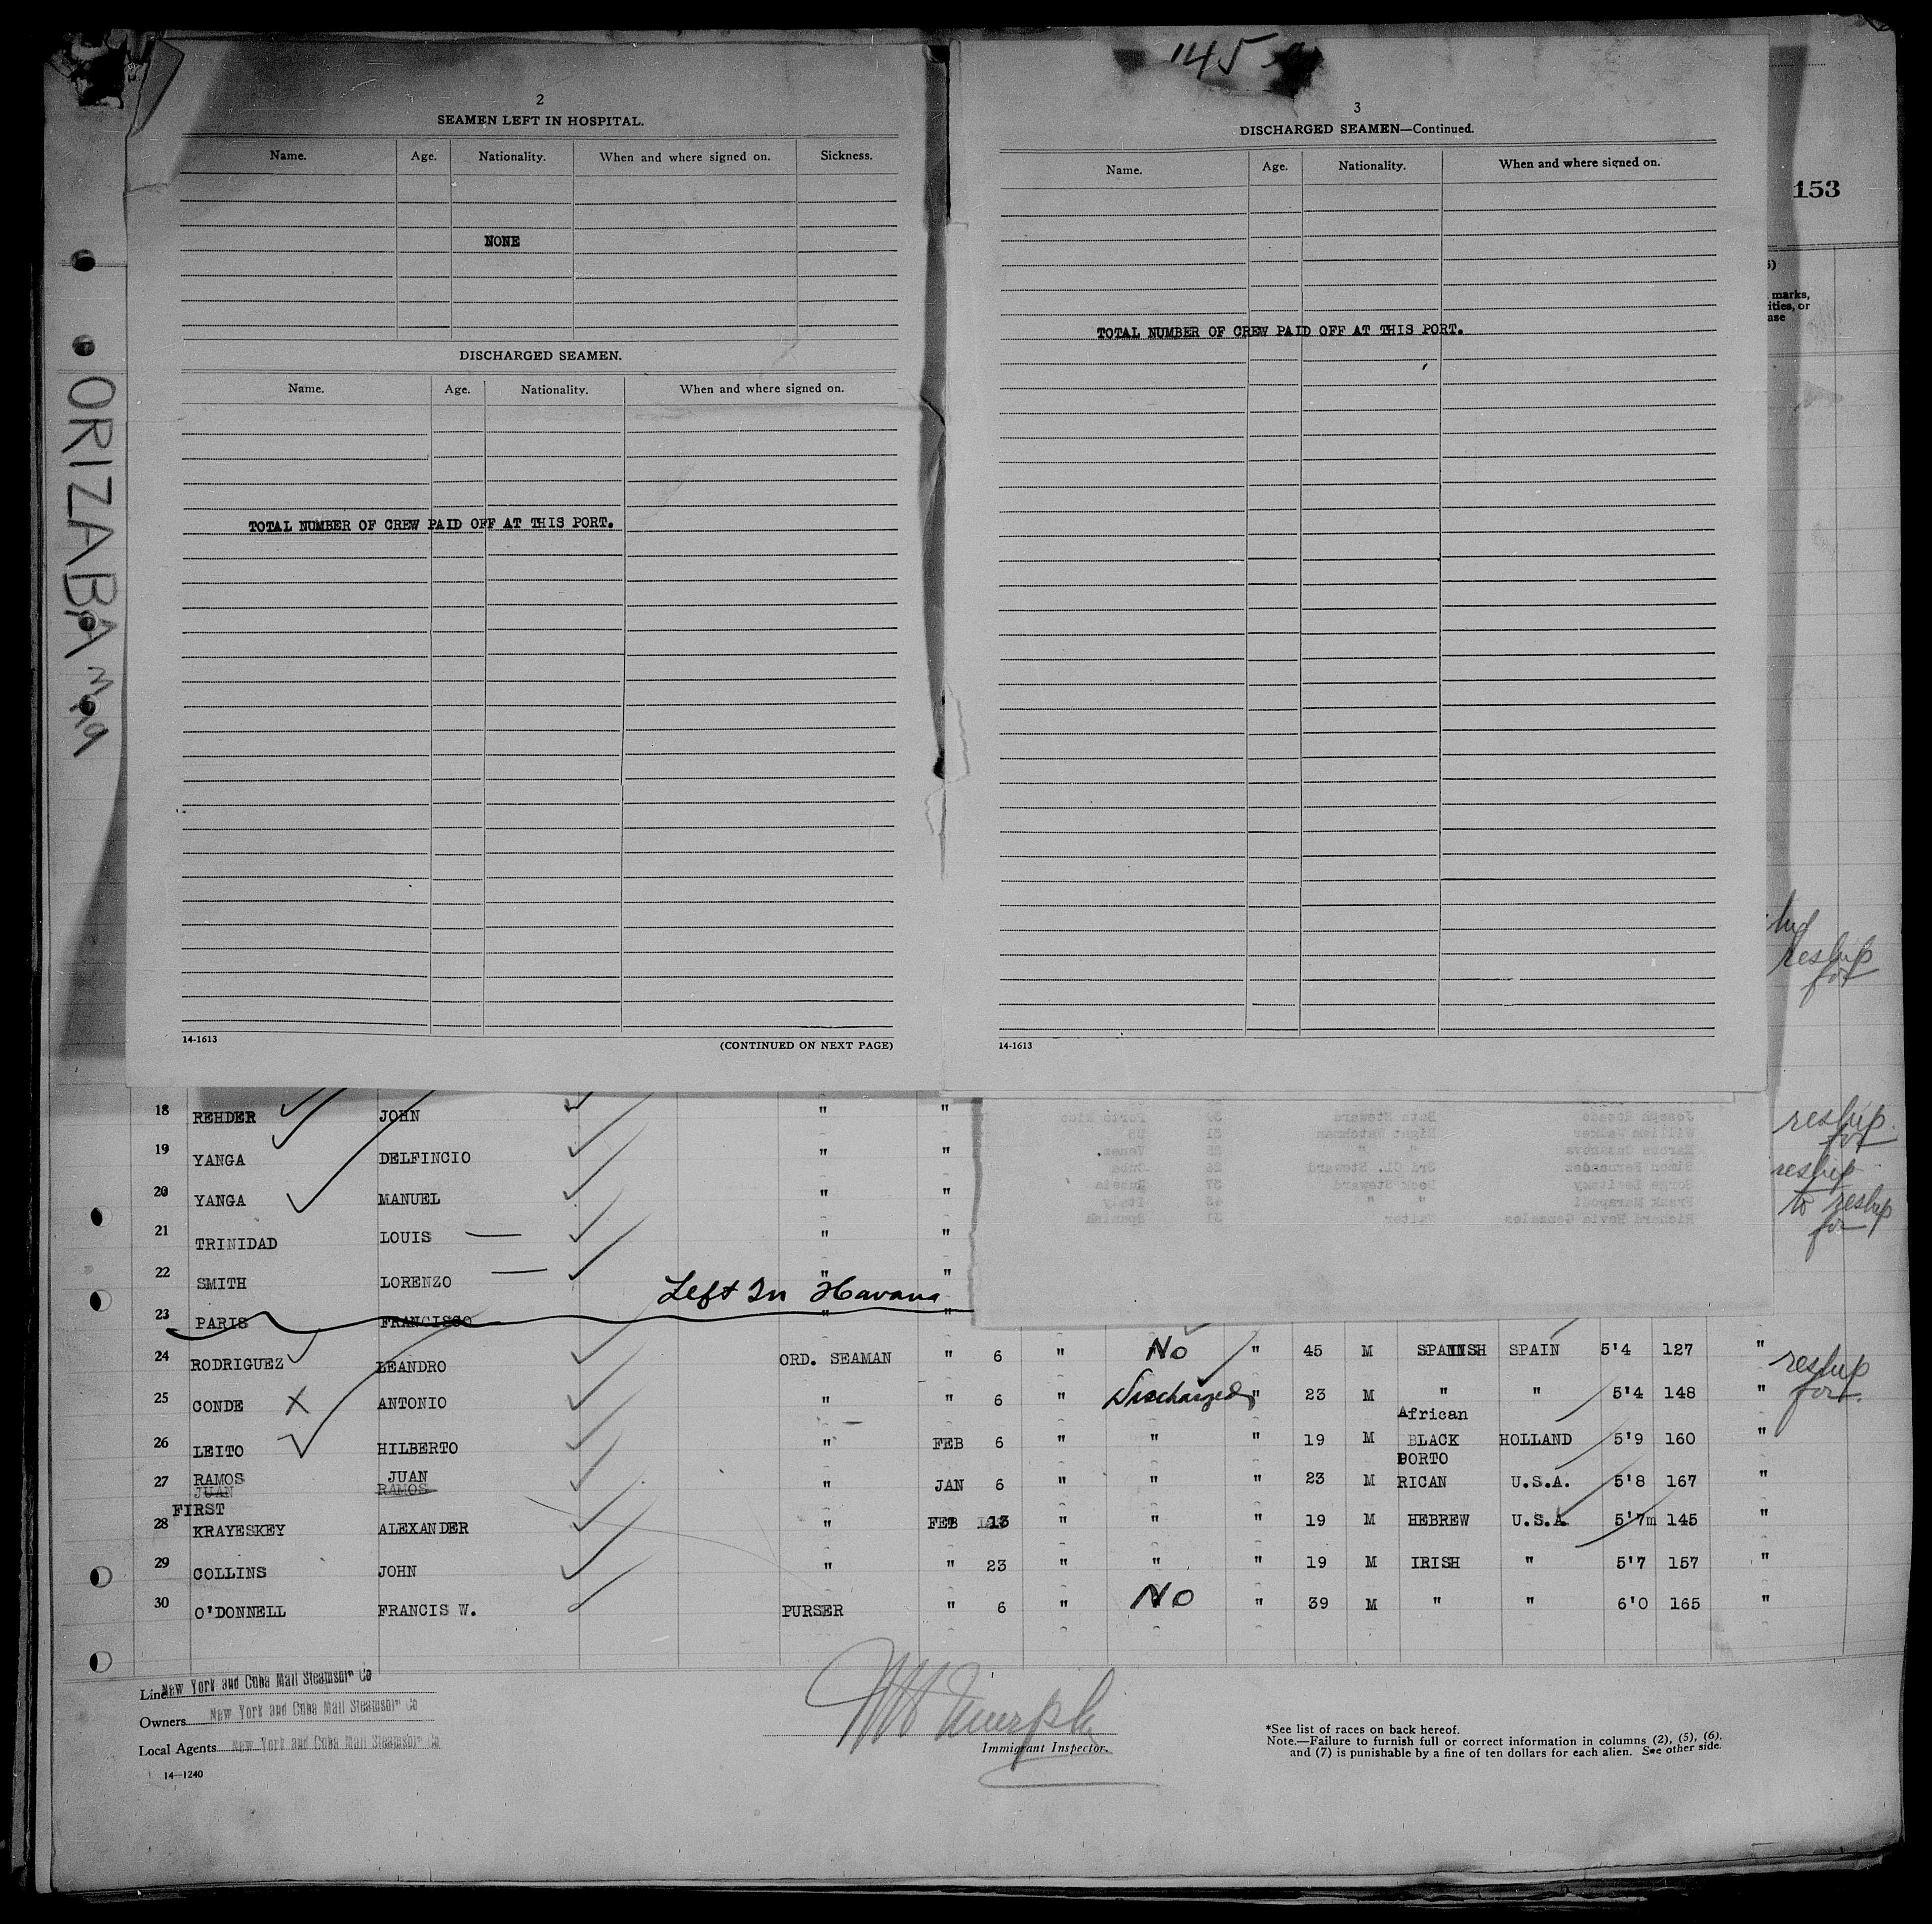 145
2
SEAMEN LEFT IN HOSPITAL.
Name. Age. Nationality. When and where signed on. Sickness.
NONE
DISCHARGED SEAMEN.
Name. Age. Nationality. When and where signed on.
TOTAL NUMBER OF CREW PAID OFF AT THIS PORT.
14-1613 (CONTINUED ON NEXT PAGE)
3
DISCHARGED SEAMEN—Continued.
Name. Age. Nationality. When and where signed on.
TOTAL NUMBER OF CREW PAID OFF AT THIS PORT.
14-1613
153
marks,
ities, or
ase
ORIZABA
reship
for
18 REHDER JOHN " " reship
for
19 YANGA DELFINCIO " " reship
20 YANGA MANUEL " " to reship
for
21 TRINIDAD LOUIS — " "
22 SMITH LORENZO — " "
Left In Havana
23 PARIS FRANCISCO " "
24 RODRIGUEZ LEANDRO ORD. SEAMAN " 6 " No " 45 M SPANISH SPAIN 5'4 127 " reship
for
25 CONDE X ANTONIO " " 6 " Discharged " 23 M " " 5'4 148 "
African
26 LEITO HILBERTO " FEB 6 " " " 19 M BLACK HOLLAND 5'9 160 "
PORTO
27 RAMOS JUAN " JAN 6 " " " 23 M RICAN U.S.A. 5'8 167 "
JUAN RAMOS
FIRST
28 KRAYESKEY ALEXANDER " FEB 13 " " " 19 M HEBREW U.S.A 5'7m 145 "
29 COLLINS JOHN " " 23 " " " 19 M IRISH " 5'7 157 "
30 O'DONNELL FRANCIS W. PURSER " 6 " NO " 39 M " " 6'0 165 "
Line New York and Cuba Mail Steamship Co
Owners New York and Cuba Mail Steamship Co
Local Agents New York and Cuba Mail Steamship Co
14—1240
Murphy
Immigrant Inspector.
*See list of races on back hereof.
Note.—Failure to furnish full or correct information in columns (2), (5), (6),
and (7) is punishable by a fine of ten dollars for each alien. See other side.